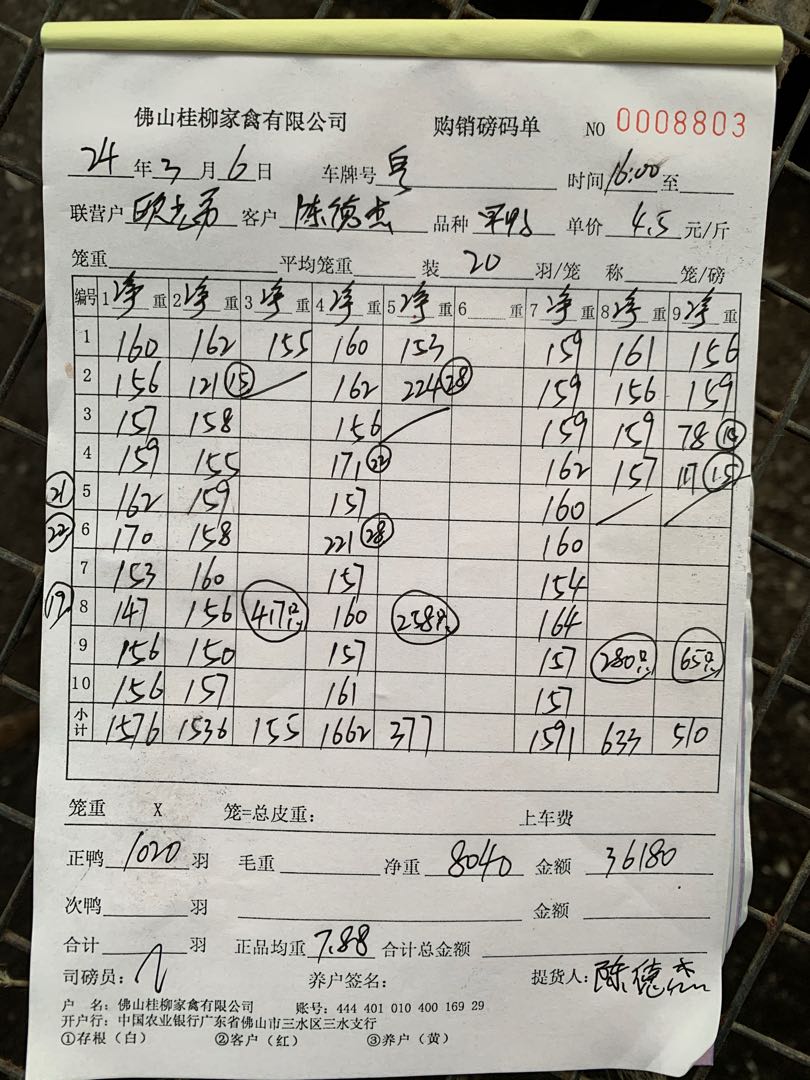 佛山桂柳家禽有限公司 购销磅码单 NO 0008803
24年3月6日 车牌号粤 时间16:00至
联营户 客户陈德杰 品种 单价4.5元/斤
笼重 平均笼重 装20羽/笼 称 笼/磅
编号 1净重 2净重 3净重 4净重 5净重 6 重 7净重 8净重 9净重
1 160 162 155 160 153 159 161 156
2 156 121 15 162 224 28 159 156 159
3 157 158 156 159 159 78
4 159 155 171 22 162 157 117 15
21 5 162 159 157 160
22 6 170 158 221 28 160
7 153 160 157 154
19 8 147 156 417只 160 258只 164
9 156 150 157 157 280只 65只
10 156 157 161 157
小计 1576 1536 155 1662 377 1591 633 510
笼重 X 笼=总皮重: 上车费
正鸭1020羽 毛重 净重8040 金额36180
次鸭 羽 金额
合计 羽 正品均重7.88 合计总金额
司磅员: 养户签名: 提货人:陈德杰
户 名: 佛山桂柳家禽有限公司 账号: 444 401 010 400 169 29
开户行: 中国农业银行广东省佛山市三水区三水支行
①存根(白) ②客户(红) ③养户(黄)